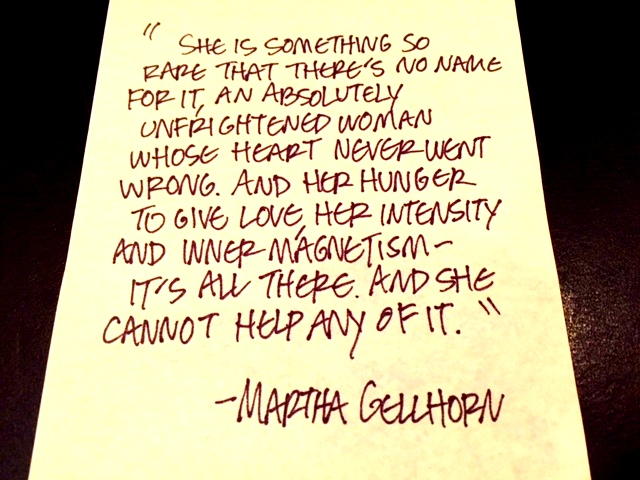 "SHE IS SOMETHING SO
RARE THAT THERE'S NO NAME
FOR IT, AN ABSOLUTELY
UNFRIGHTENED WOMAN
WHOSE HEART NEVER WENT
WRONG. AND HER HUNGER
TO GIVE LOVE, HER INTENSITY
AND INNER MAGNETISM-
IT'S ALL THERE. AND SHE
CANNOT HELP ANY OF IT."
-MARTHA GELLHORN